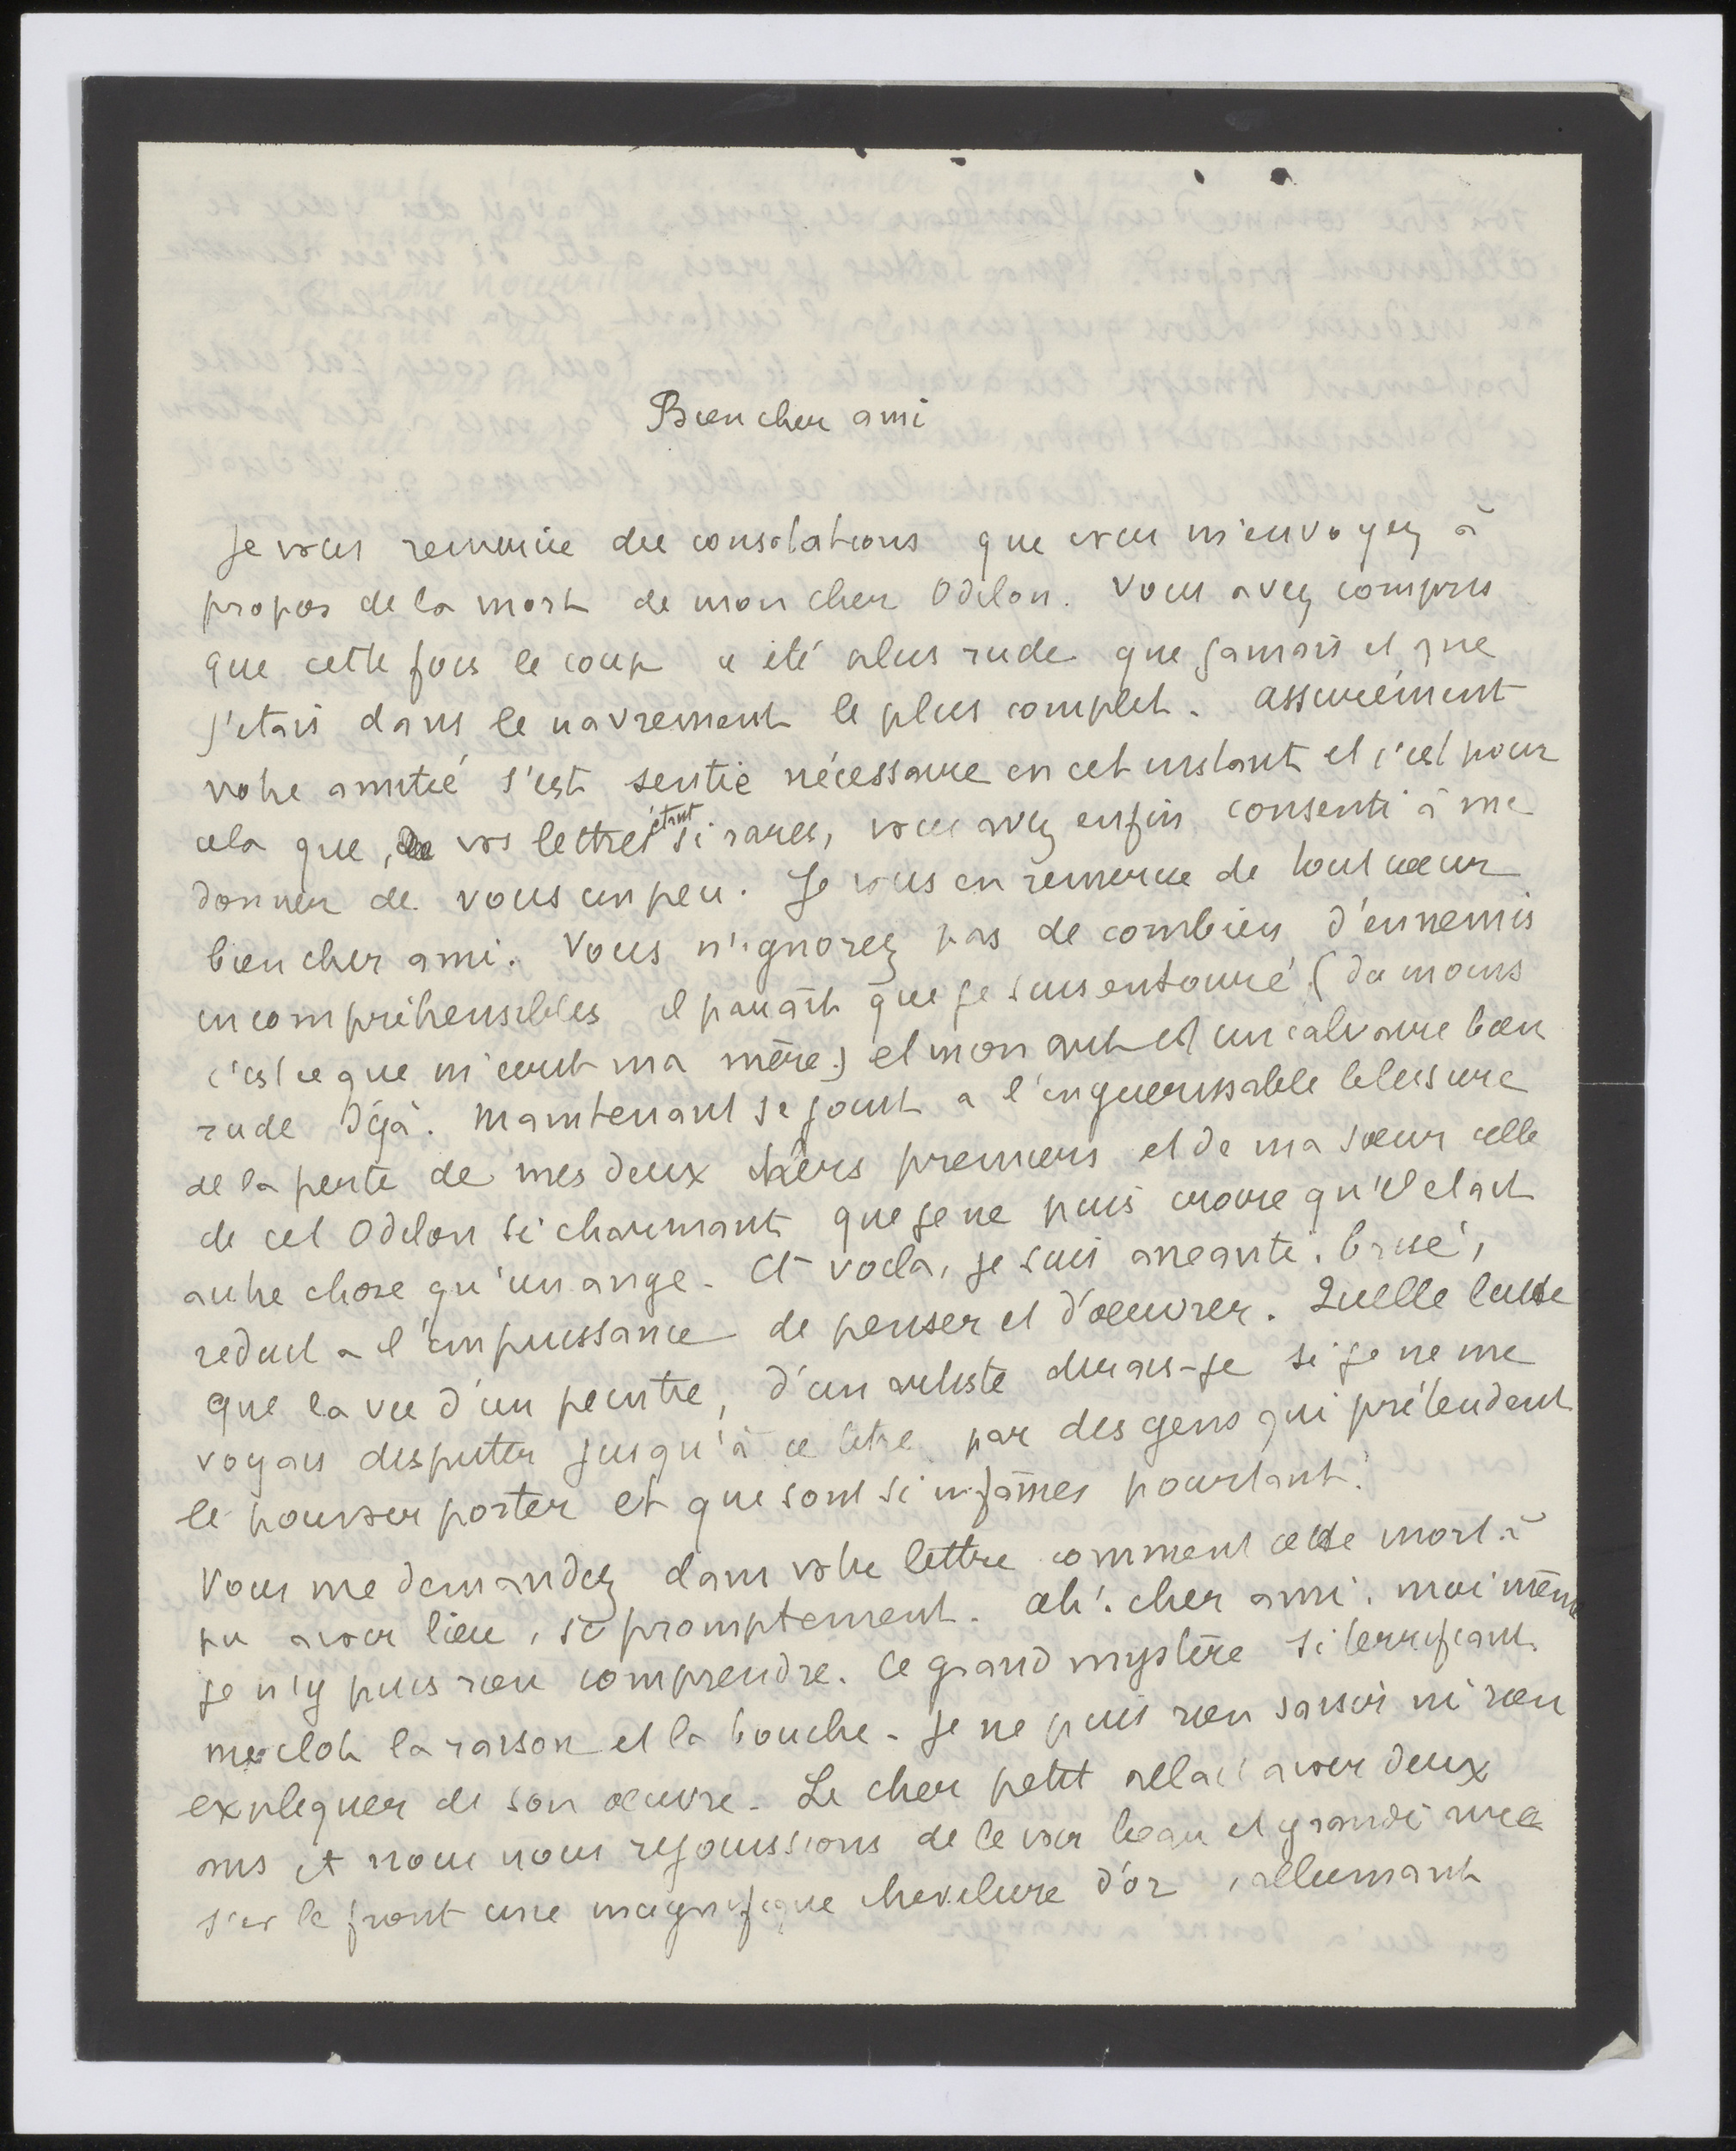 Bien cher ami
Je vous remercie des consolations que vous m'envoyez à
propos de la mort de mon cher Odilon. Vous avez compris
que cette fois le coup a été plus rude que jamais et que
j'étais dans le navrement le plus complet. Assurément
votre amitié s'est sentie nécessaire en cet instant et c'est pour
cela que, vos lettres étant si rares, vous avez enfin consenti à me
donner de vous un peu. Je vous en remercie de tout cœur
bien cher ami. Vous n'ignorez pas de combien d'ennemis
incompréhensibles il paraît que je suis entouré (du moins
c'est ce que m'écrit ma mère) et mon art est un calvaire bien
rude déjà. Maintenant se joint a l'inguérissable blessure
de la perte de mes deux chers premiers et de ma sœur celle
de cet Odilon si charmant que je ne puis croire qu'il était
autre chose qu'un ange. Et voila, je suis anéanti, brisé,
reduit a l'impuissance de penser et d'œuvrer. Quelle lutte
que la vie d'un peintre, d'un artiste dirais-je si je ne me
voyais disputer jusqu'à ce titre par des gens qui prétendent
le pouvoir porter et qui sont si infâmes pourtant!
Vous me demandez dans votre lettre comment cette mort a
pu avoir lieu, si promptement. Ah! cher ami, moi même
je n'y puis rien comprendre. Ce grand mystère si terrifiant
me clot la raison et la bouche. Je ne puis rien savoir ni rien
expliquer de son œuvre. Le cher petit allait avoir deux
ans et nous nous rejouissions de le voir beau et grandi avec
sur le front une magnifique chevelure d'or, allumant